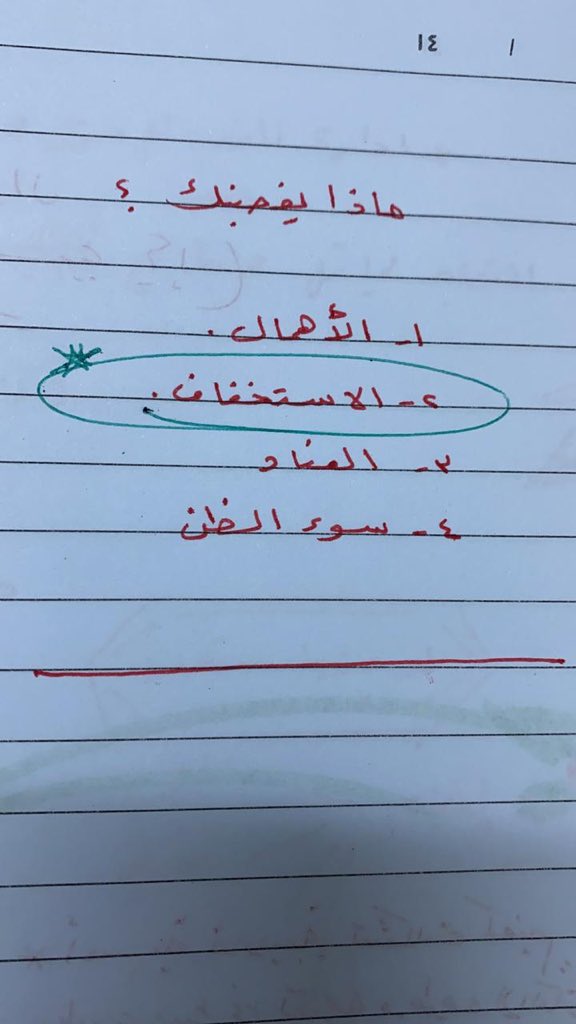 ١ ١٤
ماذا يغضبك ؟
١- الأهمال .
٢- الاستخفاف .
٣- العناد
٤- سوء الظن